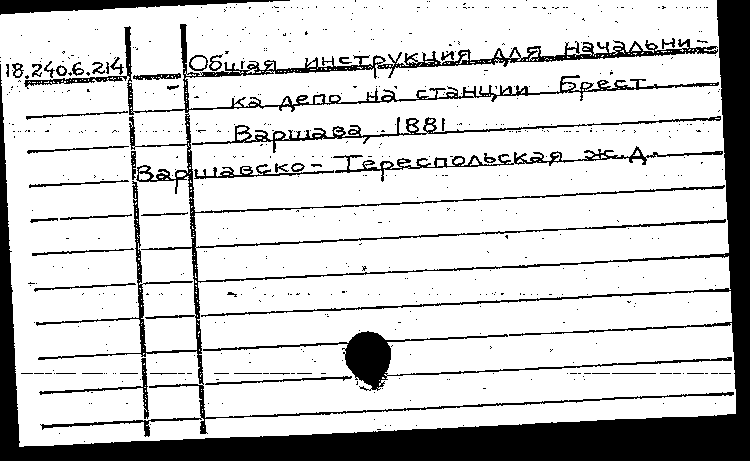 18.240.6.214 Общая инструкция для начальни-
ка депо на станции Брест.
Варшава, 1881
Варшавско-Тереспольская ж.д.